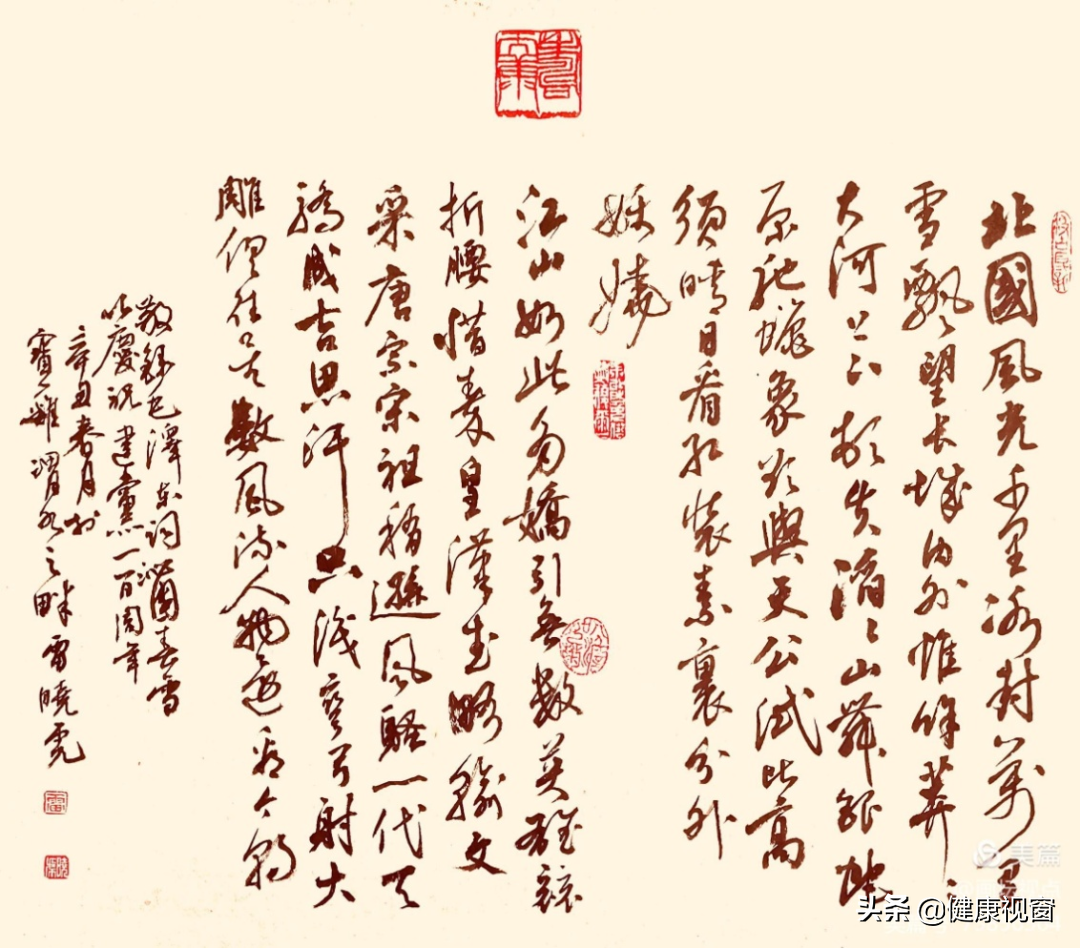 北國風光千里冰封萬里
雪飄望長城內外惟餘莽〻
大河上下頓失滔〻山舞銀蛇
原馳蠟象欲與天公試比高
須晴日看紅裝素裹分外
妖嬈
江山如此多嬌引無數英雄競
折腰惜秦皇漢武略輸文
采唐宗宋祖稍遜風騷一代天
驕成吉思汗只識彎弓射大
雕俱往矣數風流人物還看今朝
敬錄毛澤東詞沁園春雪
以慶祝建黨一百周年
辛丑春月於
寶雞渭水之畔雷曉
美篇
头条 @健康视窗